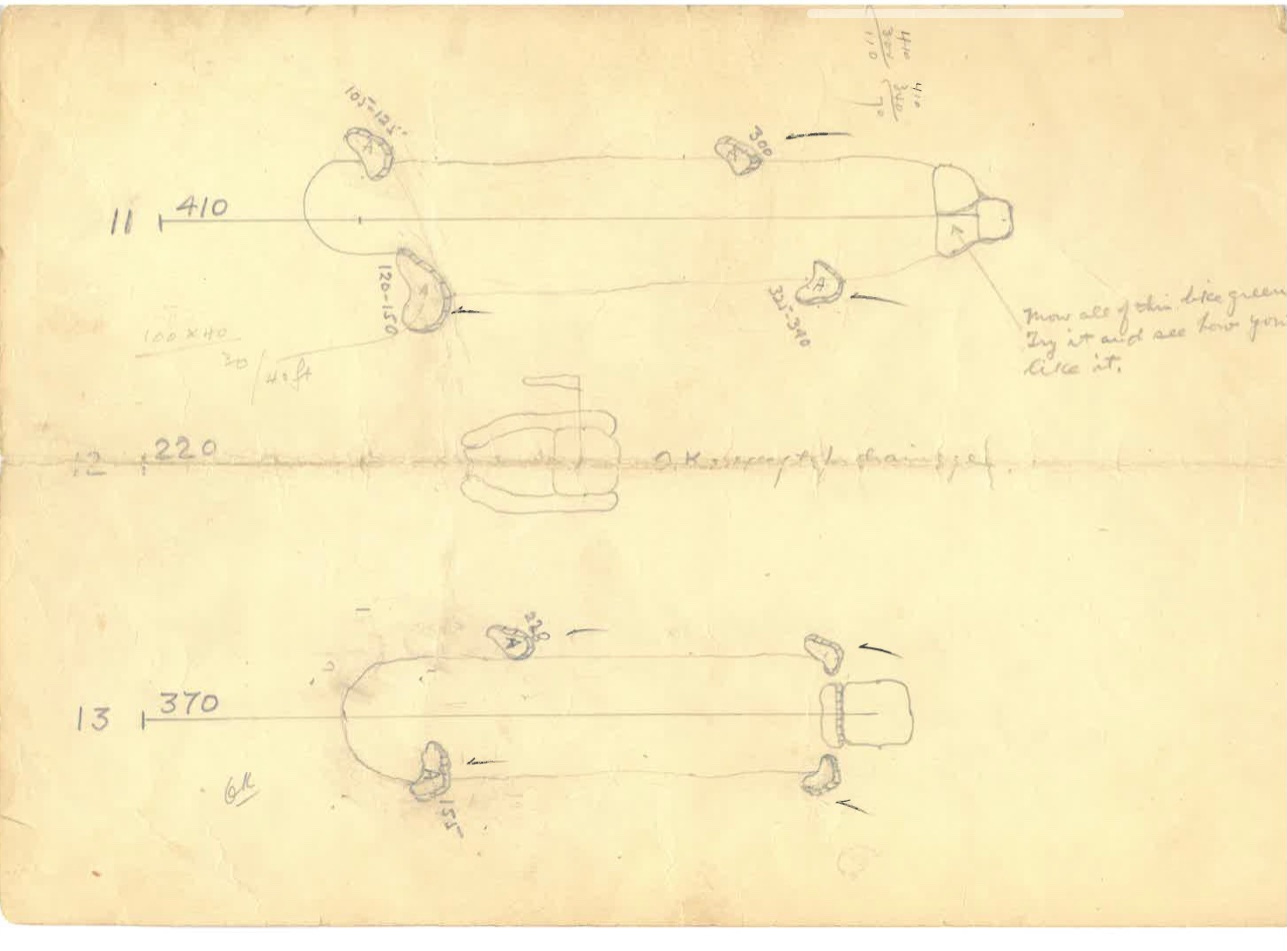 410 410
300 340
110 70
105-125
300
A
A
11 410
A
A
120-150
325-340
100 x 40
30 / 40 ft
Mow all of this like green
Try it and see how you
like it.
12 220
O.K. except for drainage
228
A
13 370
A
155
OK